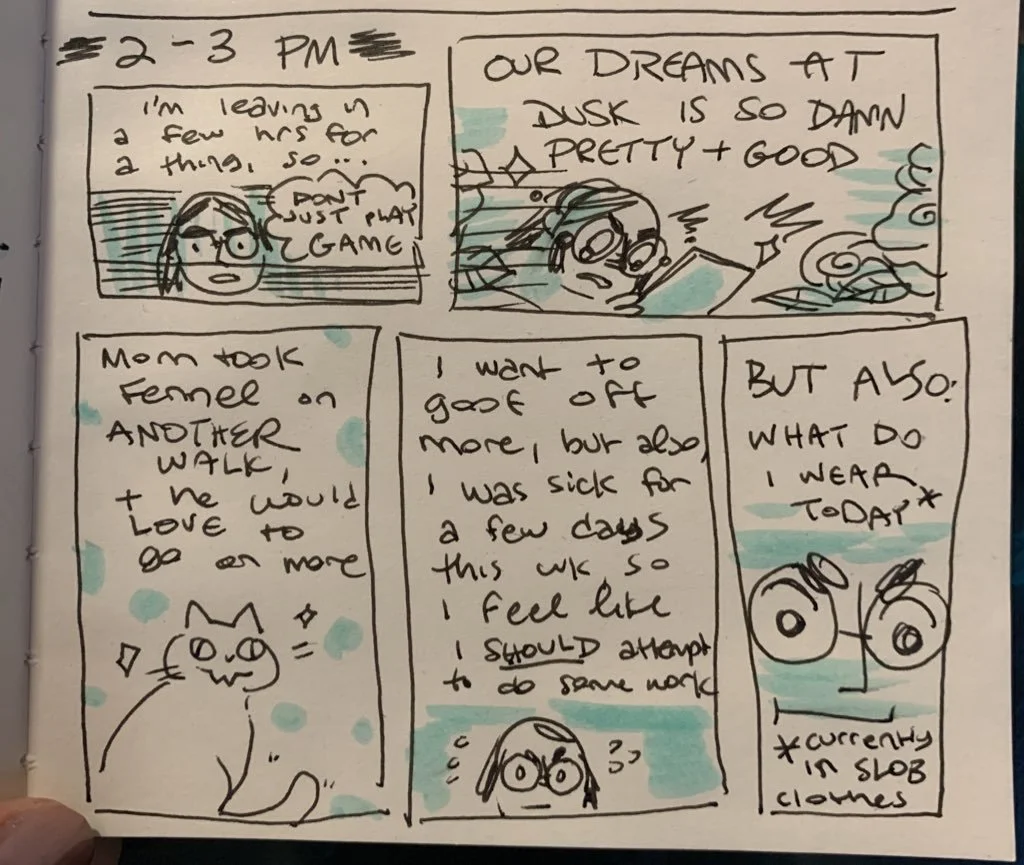 2-3 PM
I'm leaving in
a few hrs for
a thing, so...
DON'T
JUST PLAY
GAME
OUR DREAMS AT
DUSK IS SO DAMN
PRETTY + GOOD
Mom took
Fennel on
ANOTHER
WALK,
+ he would
LOVE to
go on more
I want to
goof off
more, but also,
I was sick for
a few days
this wk, so
I feel like
I SHOULD attempt
to do some work
BUT ALSO:
WHAT DO
I WEAR
TODAY*
*currently
in SLOB
clothes